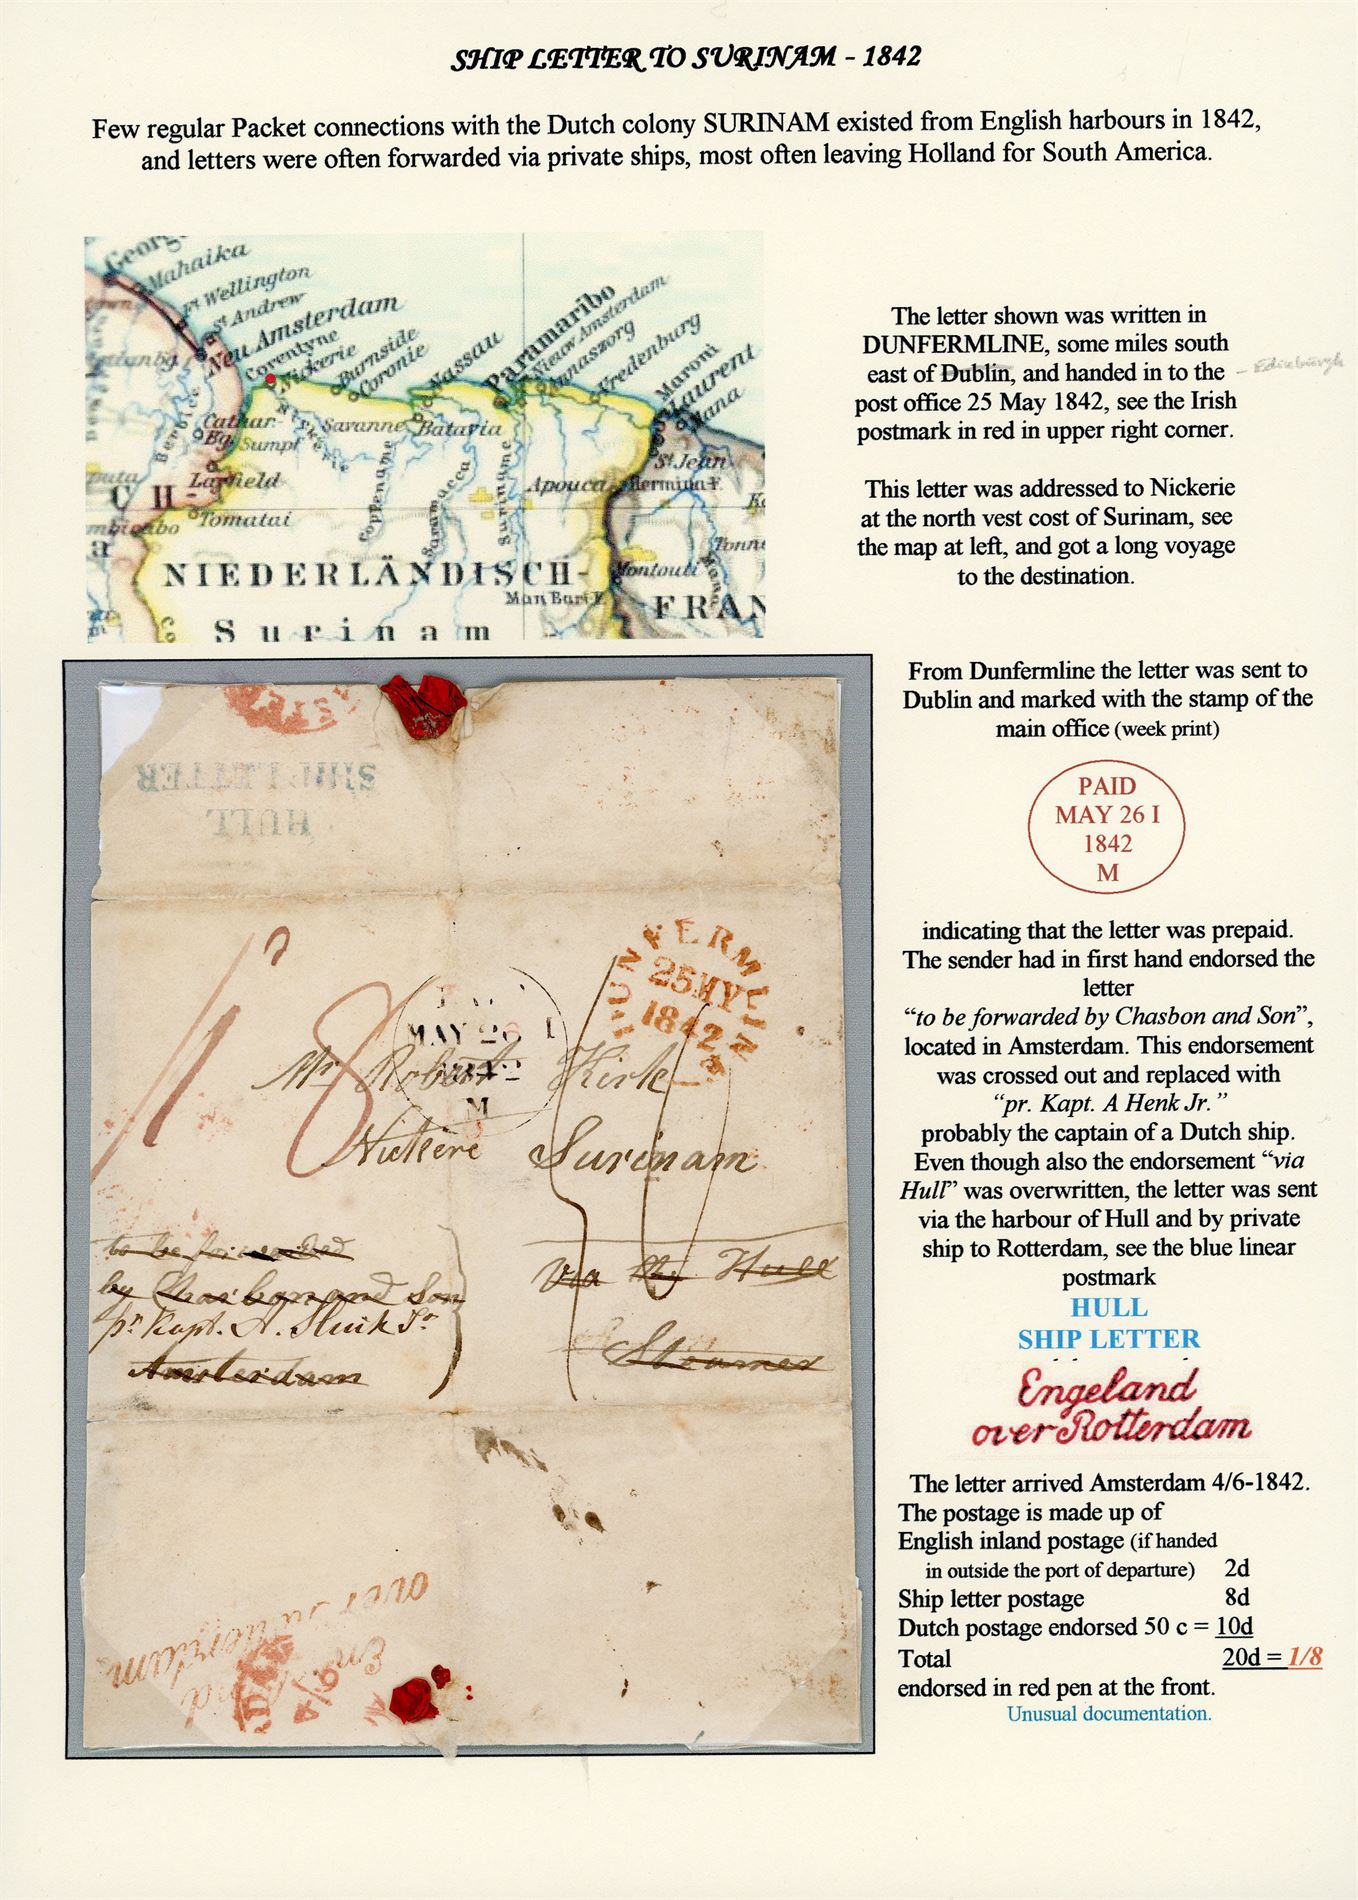 SHIP LETTER TO SURINAM - 1842
Few regular Packet connections with the Dutch colony SURINAM existed from English harbours in 1842,
and letters were often forwarded via private ships, most often leaving Holland for South America.
Mahaika
Ft Wellington
St Andrew
Neu Amsterdam
Corentyne
Nickerie
Burnside
Coronie
Nassau
Paramaribo
Nieuw Amsterdam
Annaszorg
Fredenburg
Maroni
Laurent
Mana
Savanne
Batavia
Sumpf
Larfield
Tomatai
Coppename
Saramacca
Suriname
Apouca
St Jean
Hermina F.
Montouti
NIEDERLÄNDISCH-
Surinam
FRAN
The letter shown was written in
DUNFERMLINE, some miles south
east of Dublin, and handed in to the - Edinburgh
post office 25 May 1842, see the Irish
postmark in red in upper right corner.
This letter was addressed to Nickerie
at the north vest cost of Surinam, see
the map at left, and got a long voyage
to the destination.
From Dunfermline the letter was sent to
Dublin and marked with the stamp of the
main office (week print)
PAID
MAY 26 I
1842
M
indicating that the letter was prepaid.
The sender had in first hand endorsed the
letter
“to be forwarded by Chasbon and Son”,
located in Amsterdam. This endorsement
was crossed out and replaced with
“pr. Kapt. A Henk Jr.”
probably the captain of a Dutch ship.
Even though also the endorsement “via
Hull” was overwritten, the letter was sent
via the harbour of Hull and by private
ship to Rotterdam, see the blue linear
postmark
HULL
SHIP LETTER
Engeland
over Rotterdam
The letter arrived Amsterdam 4/6-1842.
The postage is made up of
English inland postage (if handed
in outside the port of departure) 2d
Ship letter postage 8d
Dutch postage endorsed 50 c = 10d
Total 20d = 1/8
endorsed in red pen at the front.
Unusual documentation.
HULL
SHIP LETTER
DUNFERMLINE
25 MY
1842
MAY 26 I
1842
M
1/8
Mr Robert Kirk
Nickerie Surinam
to be forwarded
by and Son
pr Kapt. A. Jr
Amsterdam
via Hull
Steamer
Engeland
over Rotterdam
4/6